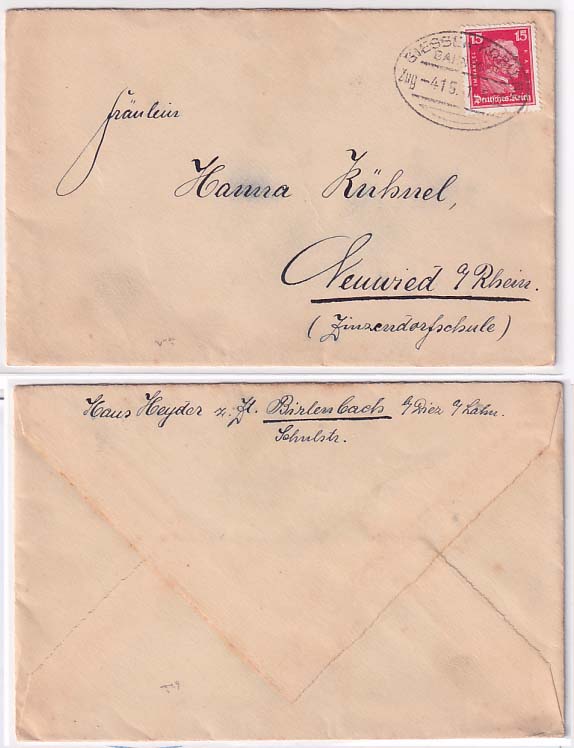 GIESSEN
BAHN
Zug 415
15 15
Deutsches Reich
Fräulein
Hanna Kühnel,
Neuwied a/Rhein.
(Zinzendorfschule)
Hans Heyder z. Zt. Birlenbach b/Diez a/Lahn.
Schulstr.